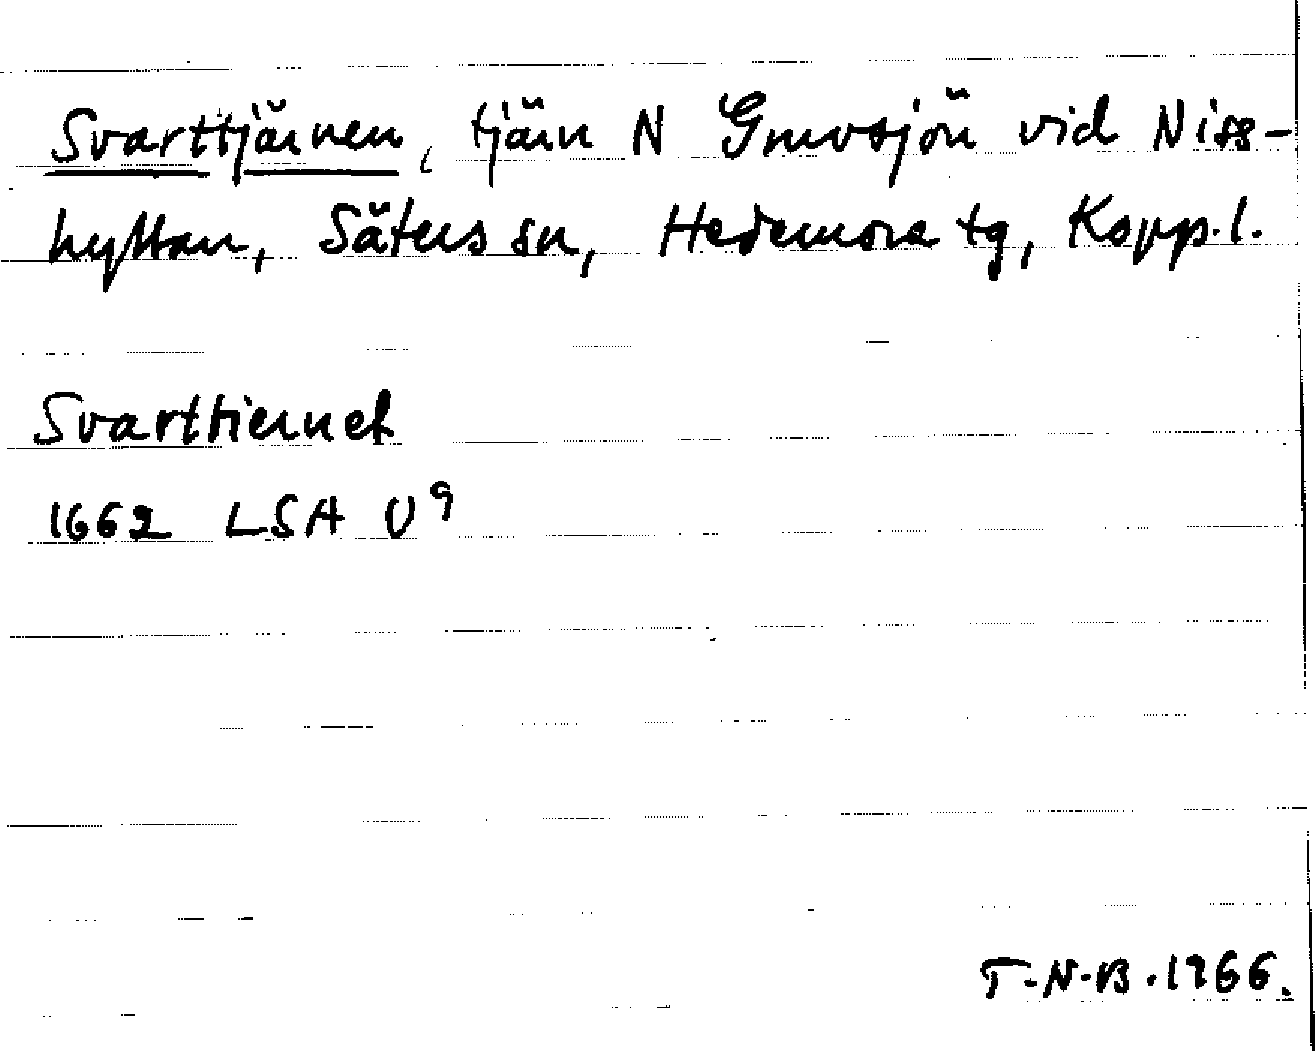 Svarttjärnen, tjärn N Gruvsjön vid Niss-
hyttan, Säters sn, Hedemora tg, Kopp.l.
Svarttiernet
1662 LSA U⁹
T.N.B. 1966.